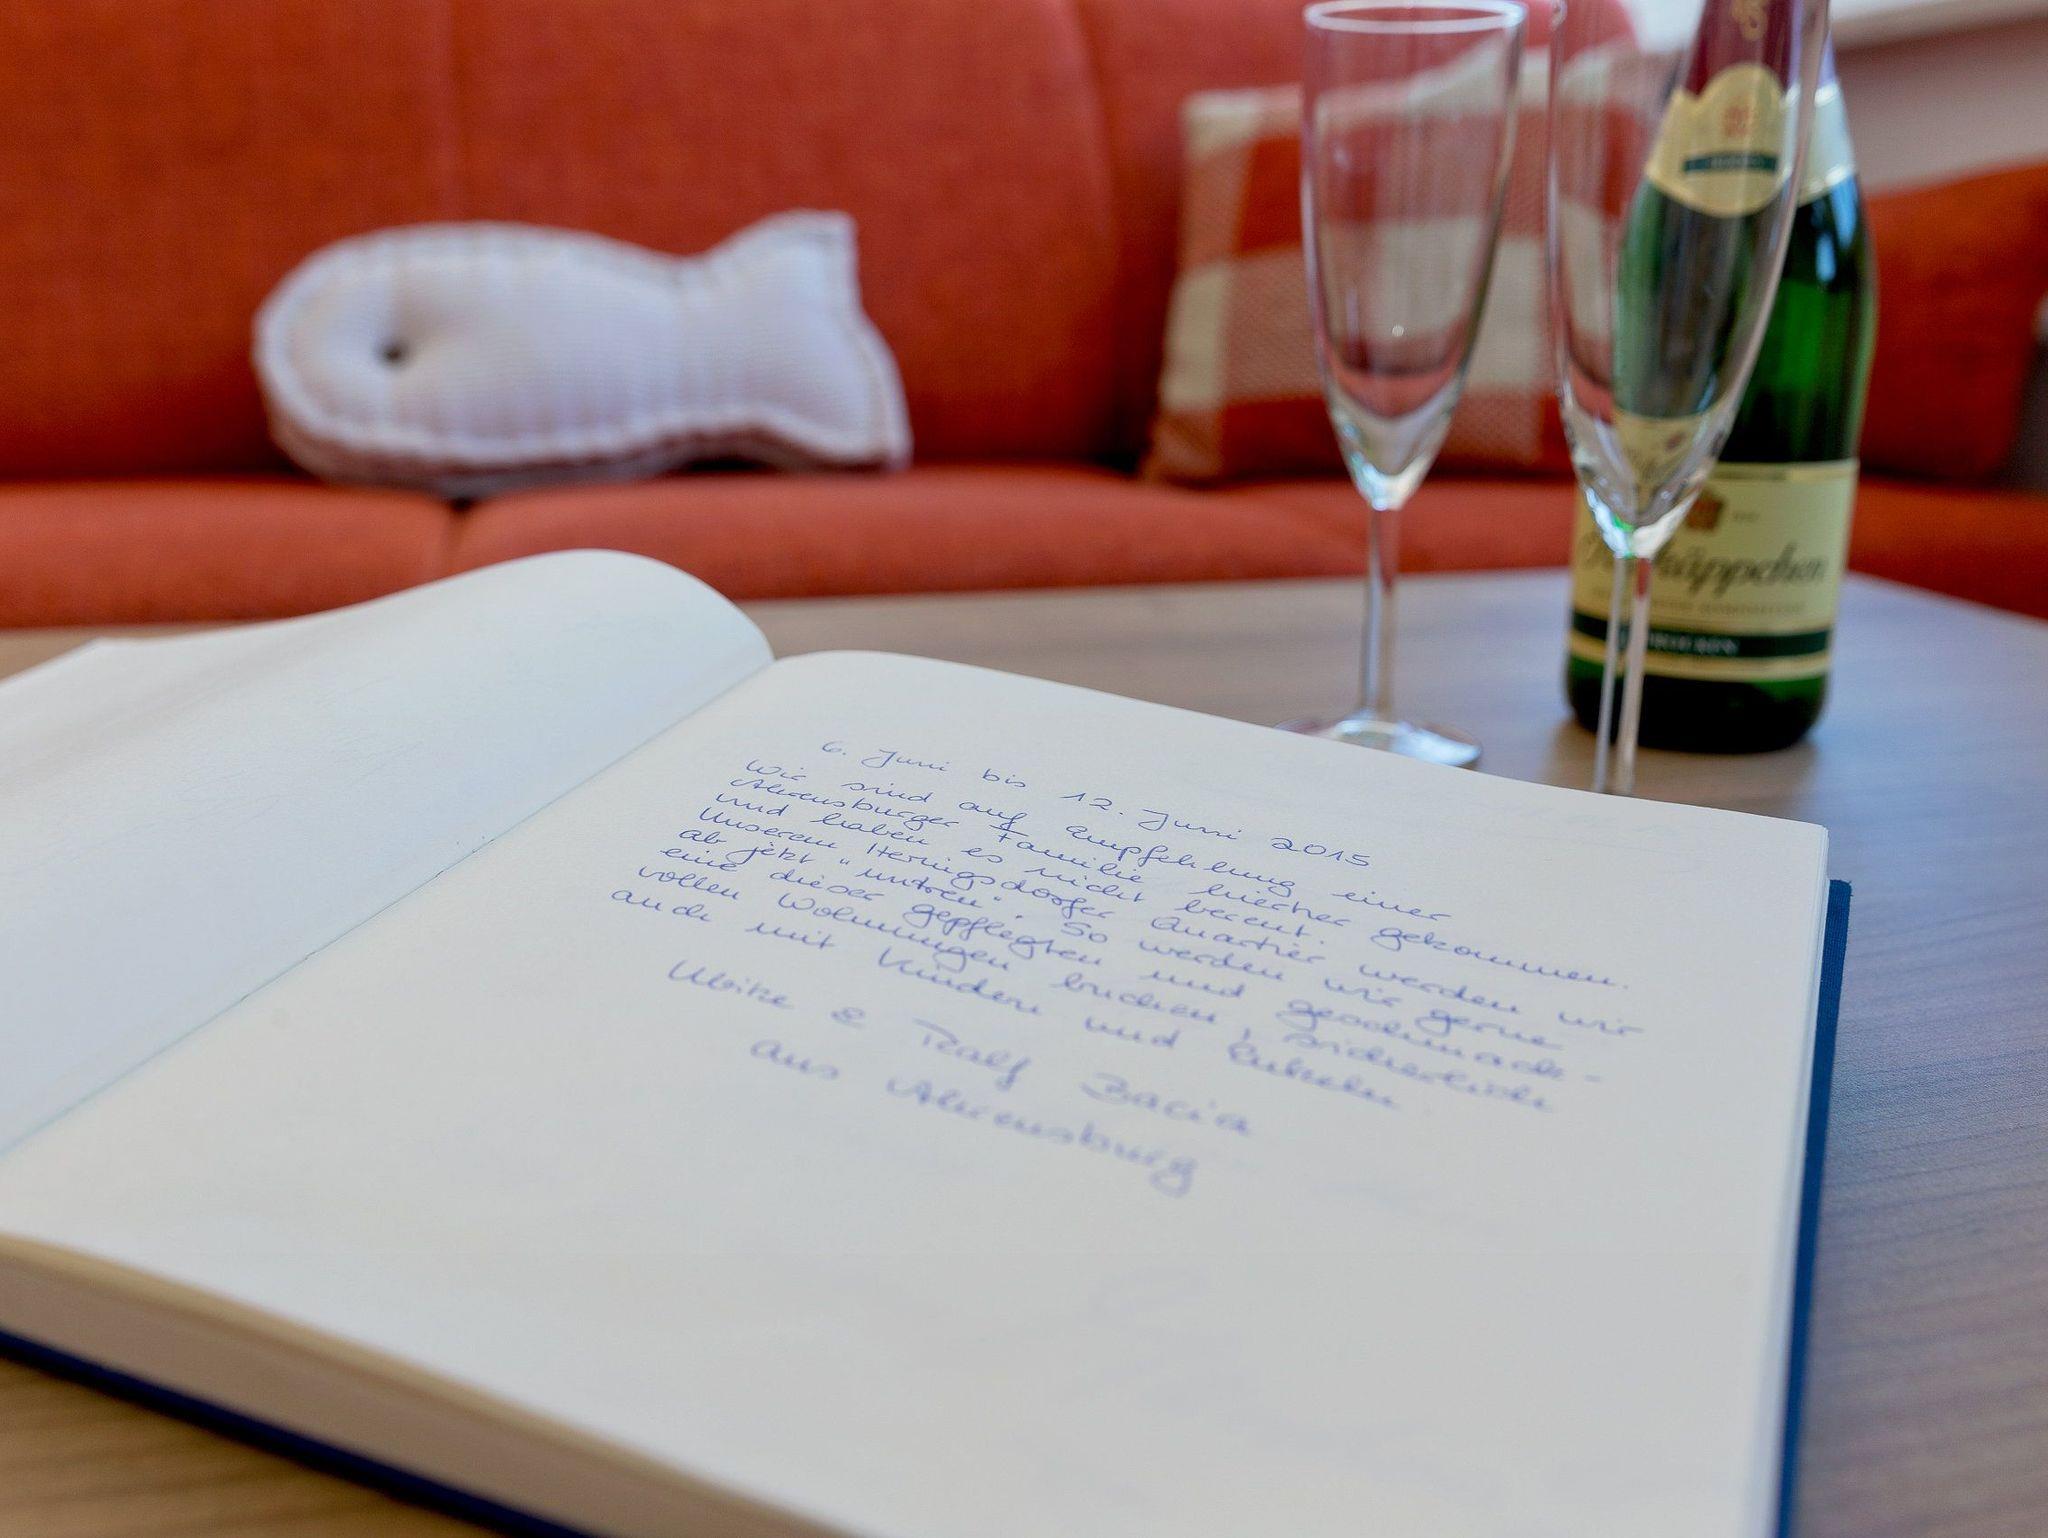 6. Juni bis 12. Juni 2015
Wir sind auf Empfehlung einer
Ahrensburger Familie hierher gekommen
und haben es nicht bereut.
Unserem Heringsdorfer Quartier werden wir
ab jetzt "untreu". So werden wir gerne
eine dieser gepflegten und geschmack-
vollen Wohnungen buchen, sicherlich
auch mit Kindern und Enkeln
& Ralf Bacia
aus Ahrensburg
käppchen
TROCKEN